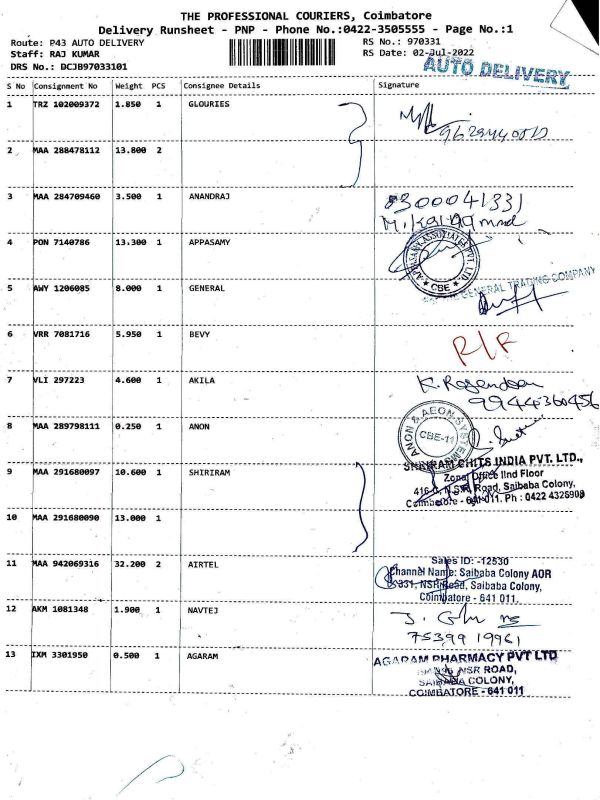 THE PROFESSIONAL COURIERS, Coimbatore
Delivery Runsheet - PNP - Phone No.:0422-3505555 - Page No.:1
Route: P43 AUTO DELIVERY
RS No.: 970331
Staff: RAJ KUMAR
RS Date: 02-Jul-2022
DRS No.: DCJB97033101
AUTO DELIVERY
S No Consignment No Weight PCS Consignee Details Signature
1 TRZ 102009372 1.850 1 GLOURIES
2 MAA 288478112 13.800 2
3 MAA 284709460 3.500 1 ANANDRAJ
8300041331
4 PON 7140786 13.300 1 APPASAMY
APPASAMY ASSOCIATES PVT. LTD.
CBE
5 AWY 1206085 8.000 1 GENERAL
GENERAL TRADING COMPANY
6 VRR 7081716 5.950 1 BEVY
R/F
7 VLI 297223 4.600 1 AKILA
K. Rogendoon
9944360456
8 MAA 289798111 0.250 1 ANON
ANON & AEON
CBE-11
9 MAA 291680097 10.600 1 SHIRIRAM
SHRIRAM CHITS INDIA PVT. LTD.,
Zonal Office IInd Floor
N.S.R. Road, Saibaba Colony,
Coimbatore - 641 011. Ph : 0422 4326903
10 MAA 291680090 13.000 1
11 MAA 942069316 32.200 2 AIRTEL
Sales ID: -12530
Channel Name: Saibaba Colony AOR
331, NSR Road, Saibaba Colony,
Coimbatore - 641 011.
12 AKM 1081348 1.900 1 NAVTEJ
75399 19961
13 IXM 3301950 0.500 1 AGARAM
AGARAM PHARMACY PVT LTD
NSR ROAD,
SAIBABA COLONY,
COIMBATORE - 641 011